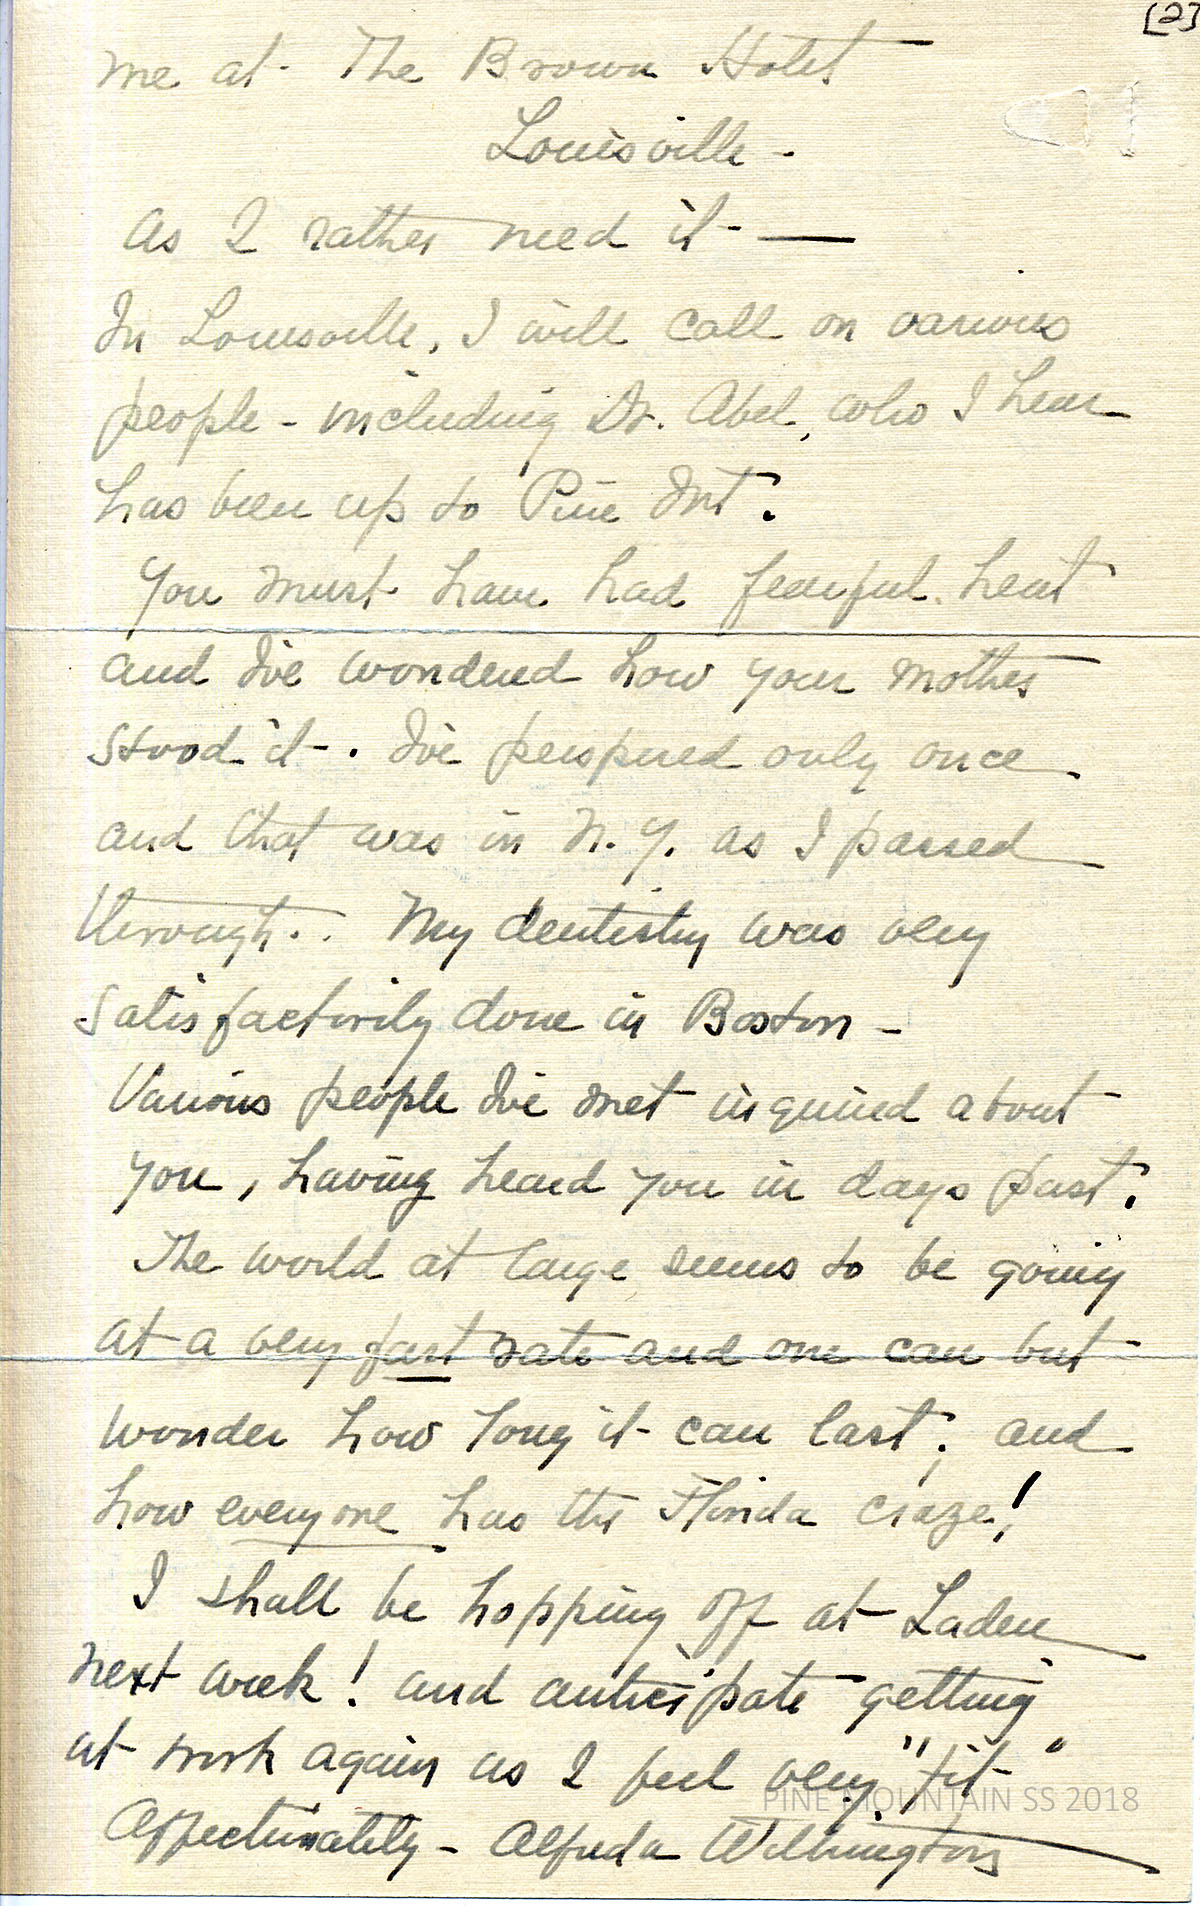 [2]
me at The Brown Hotel
Louisville -
As I rather need it - —
In Louisville, I will call on various
people - including Dr. Abel, who I hear
has been up to Pine Mt.
You must have had fearful heat
and I've wondered how your mother
stood it - . I've perspired only once
and that was in N.Y. as I passed
through. . My dentistry was very
satisfactorily done in Boston -
Various people I've met inquired about
you, having heard you in days past.
The world at large seems to be going
at a very fast rate and one can but
wonder how long it can last; and
how everyone has the Florida craze!
I shall be hopping off at Laden
next week! and anticipate getting
at work again as I feel very "fit"
PINE MOUNTAIN SS 2018
Affectionately - Alfreda Withington